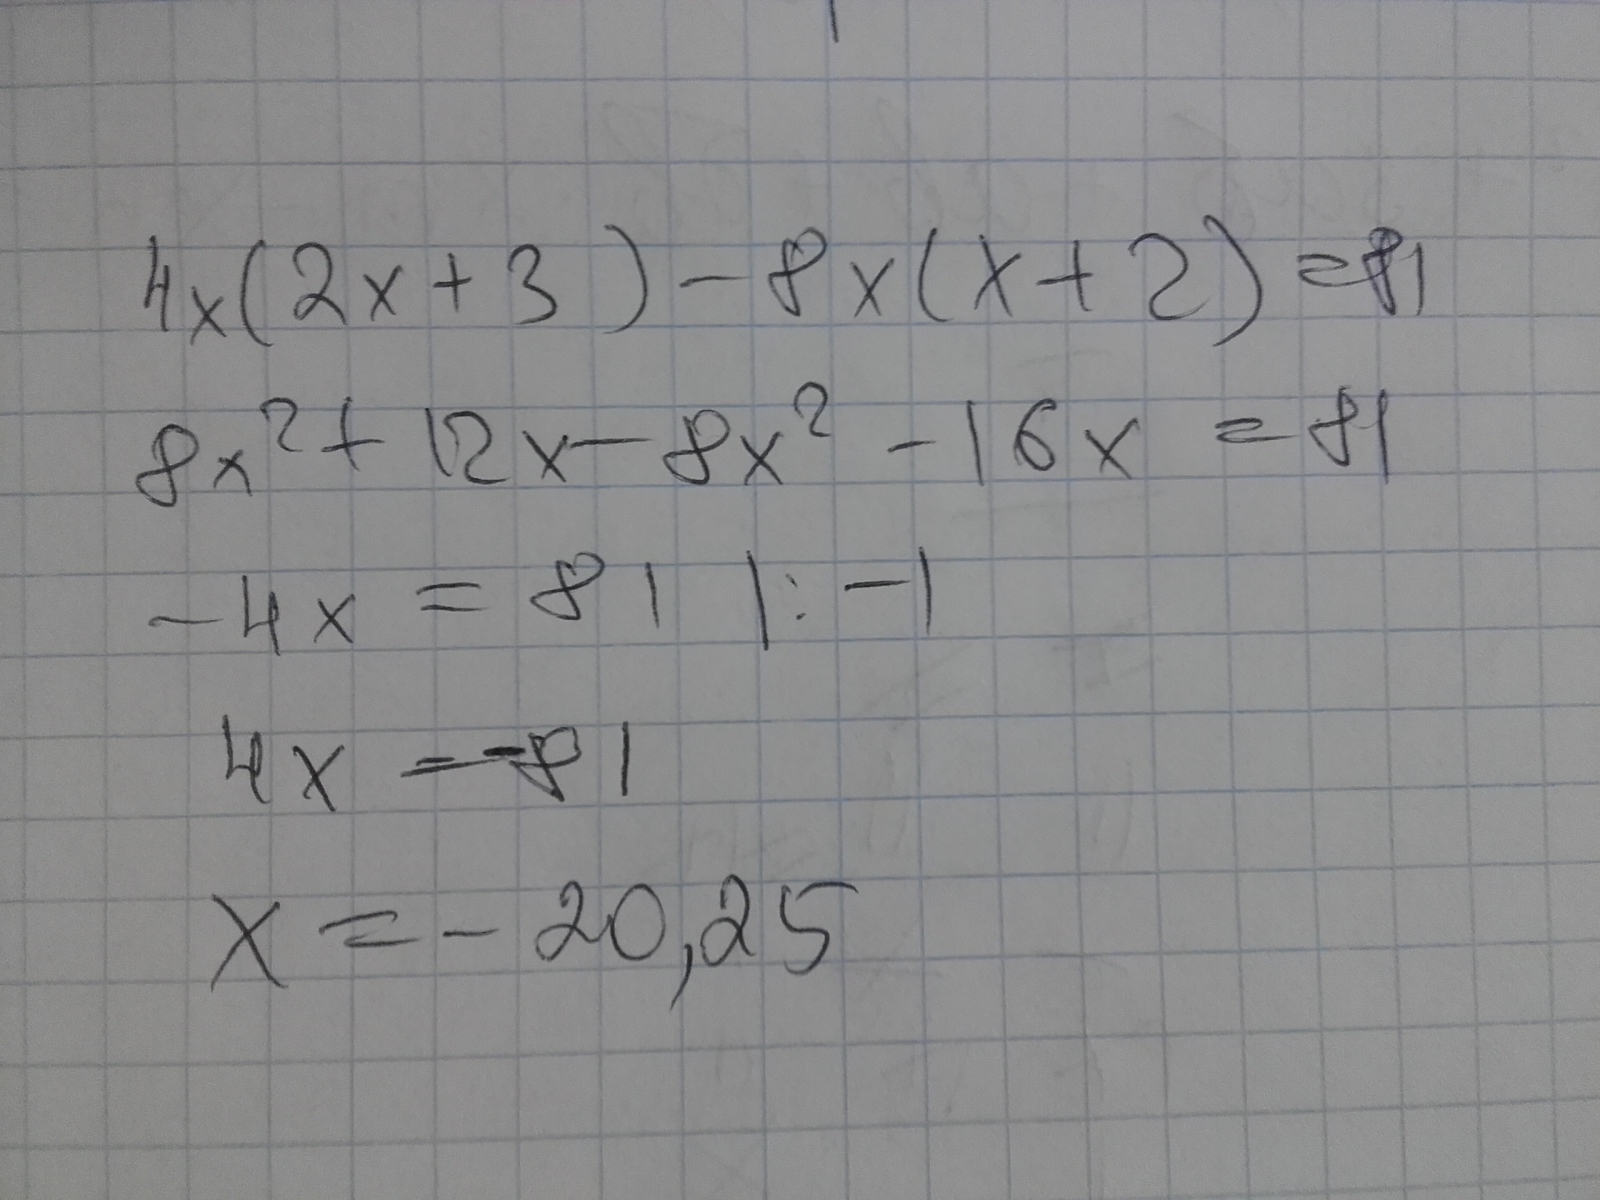 4x(2x+3)-8x(x+2)=81
8x²+12x-8x²-16x=81
-4x=81 |:-1
4x=-81
x=-20,25